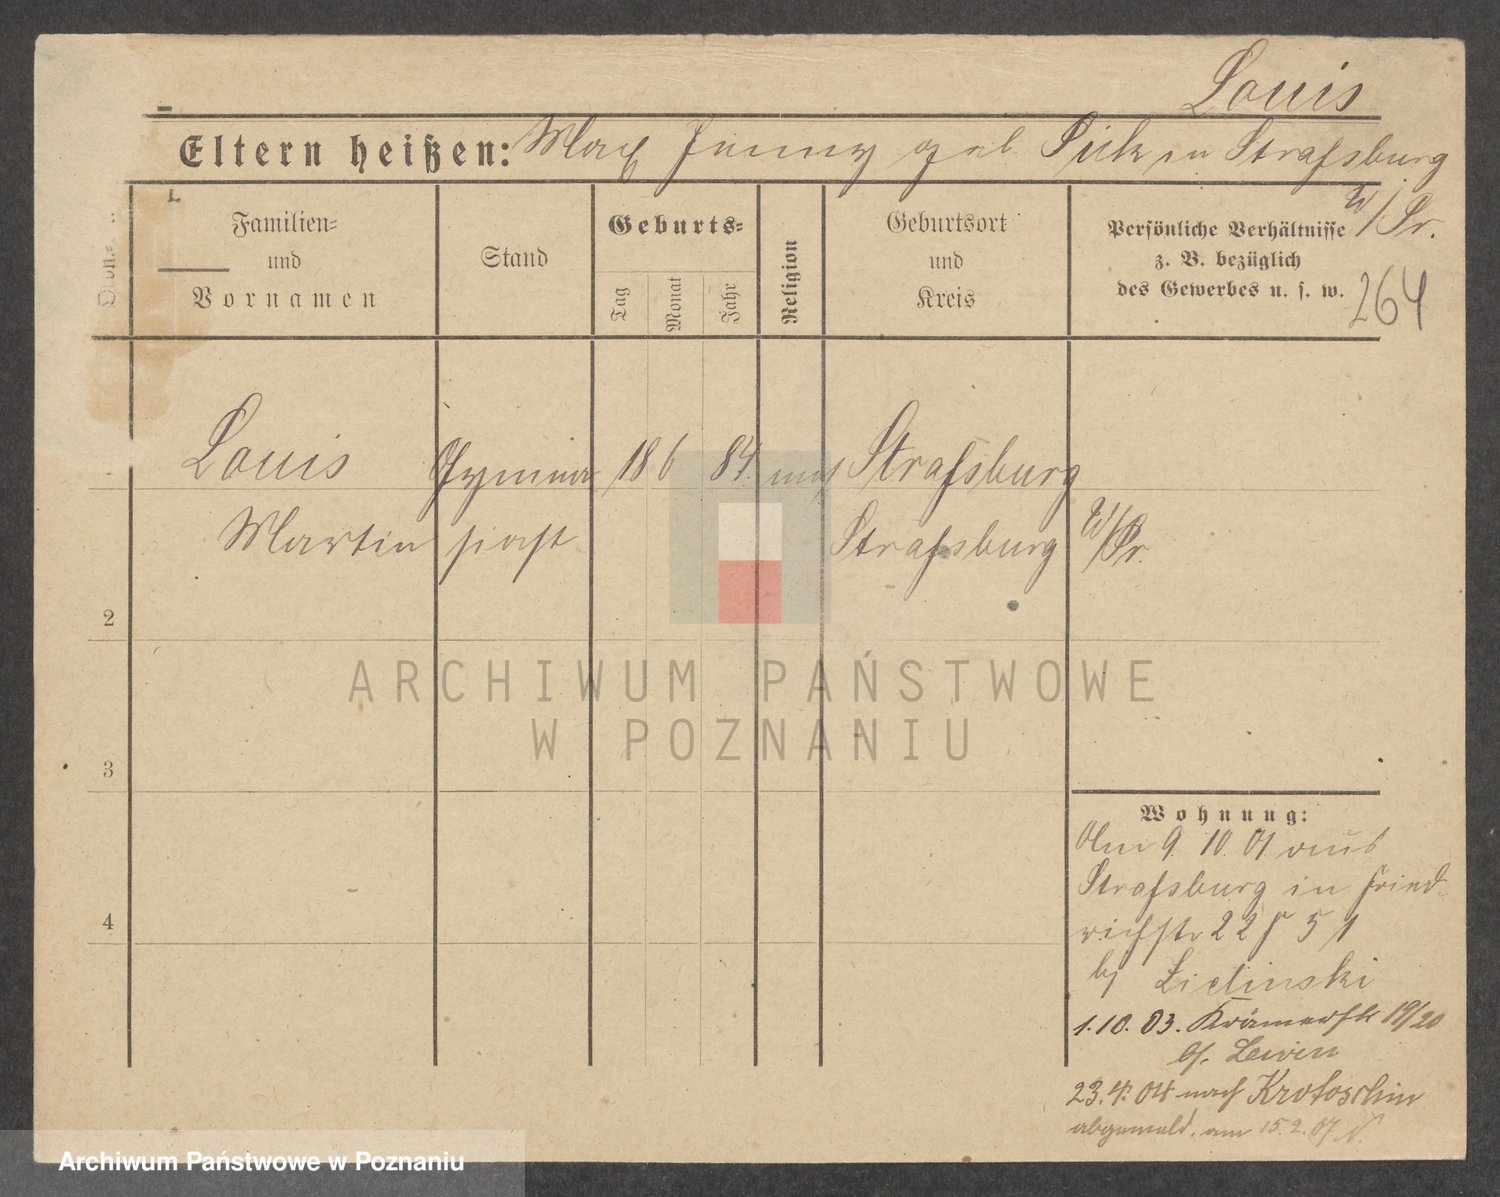 Louis
Eltern heißen: Max Jenny geb. Pick in Straßburg
W/Pr.
Familien=
und
Vornamen
Stand
Geburts=
Tag
Monat
Jahr
Religion
Geburtsort
und
Kreis
Persönliche Verhältnisse
z. B. bezüglich
des Gewerbes u. s. w.
264
Louis Gymna 18 6 84 mos Straßburg
Martin siast Straßburg W/Pr.
2
3
4
Wohnung:
Am 9. 10. 01 aus
Straßburg in Fried-
richstr 22
b/ Lielinski
1. 10. 03. Krämerstr 19/20
b/. Lewin
23. 4. 04 nach Krotoschin
abgemeld. am 15. 2. 07 N.
ARCHIWUM PAŃSTWOWE
W POZNANIU
Archiwum Państwowe w Poznaniu